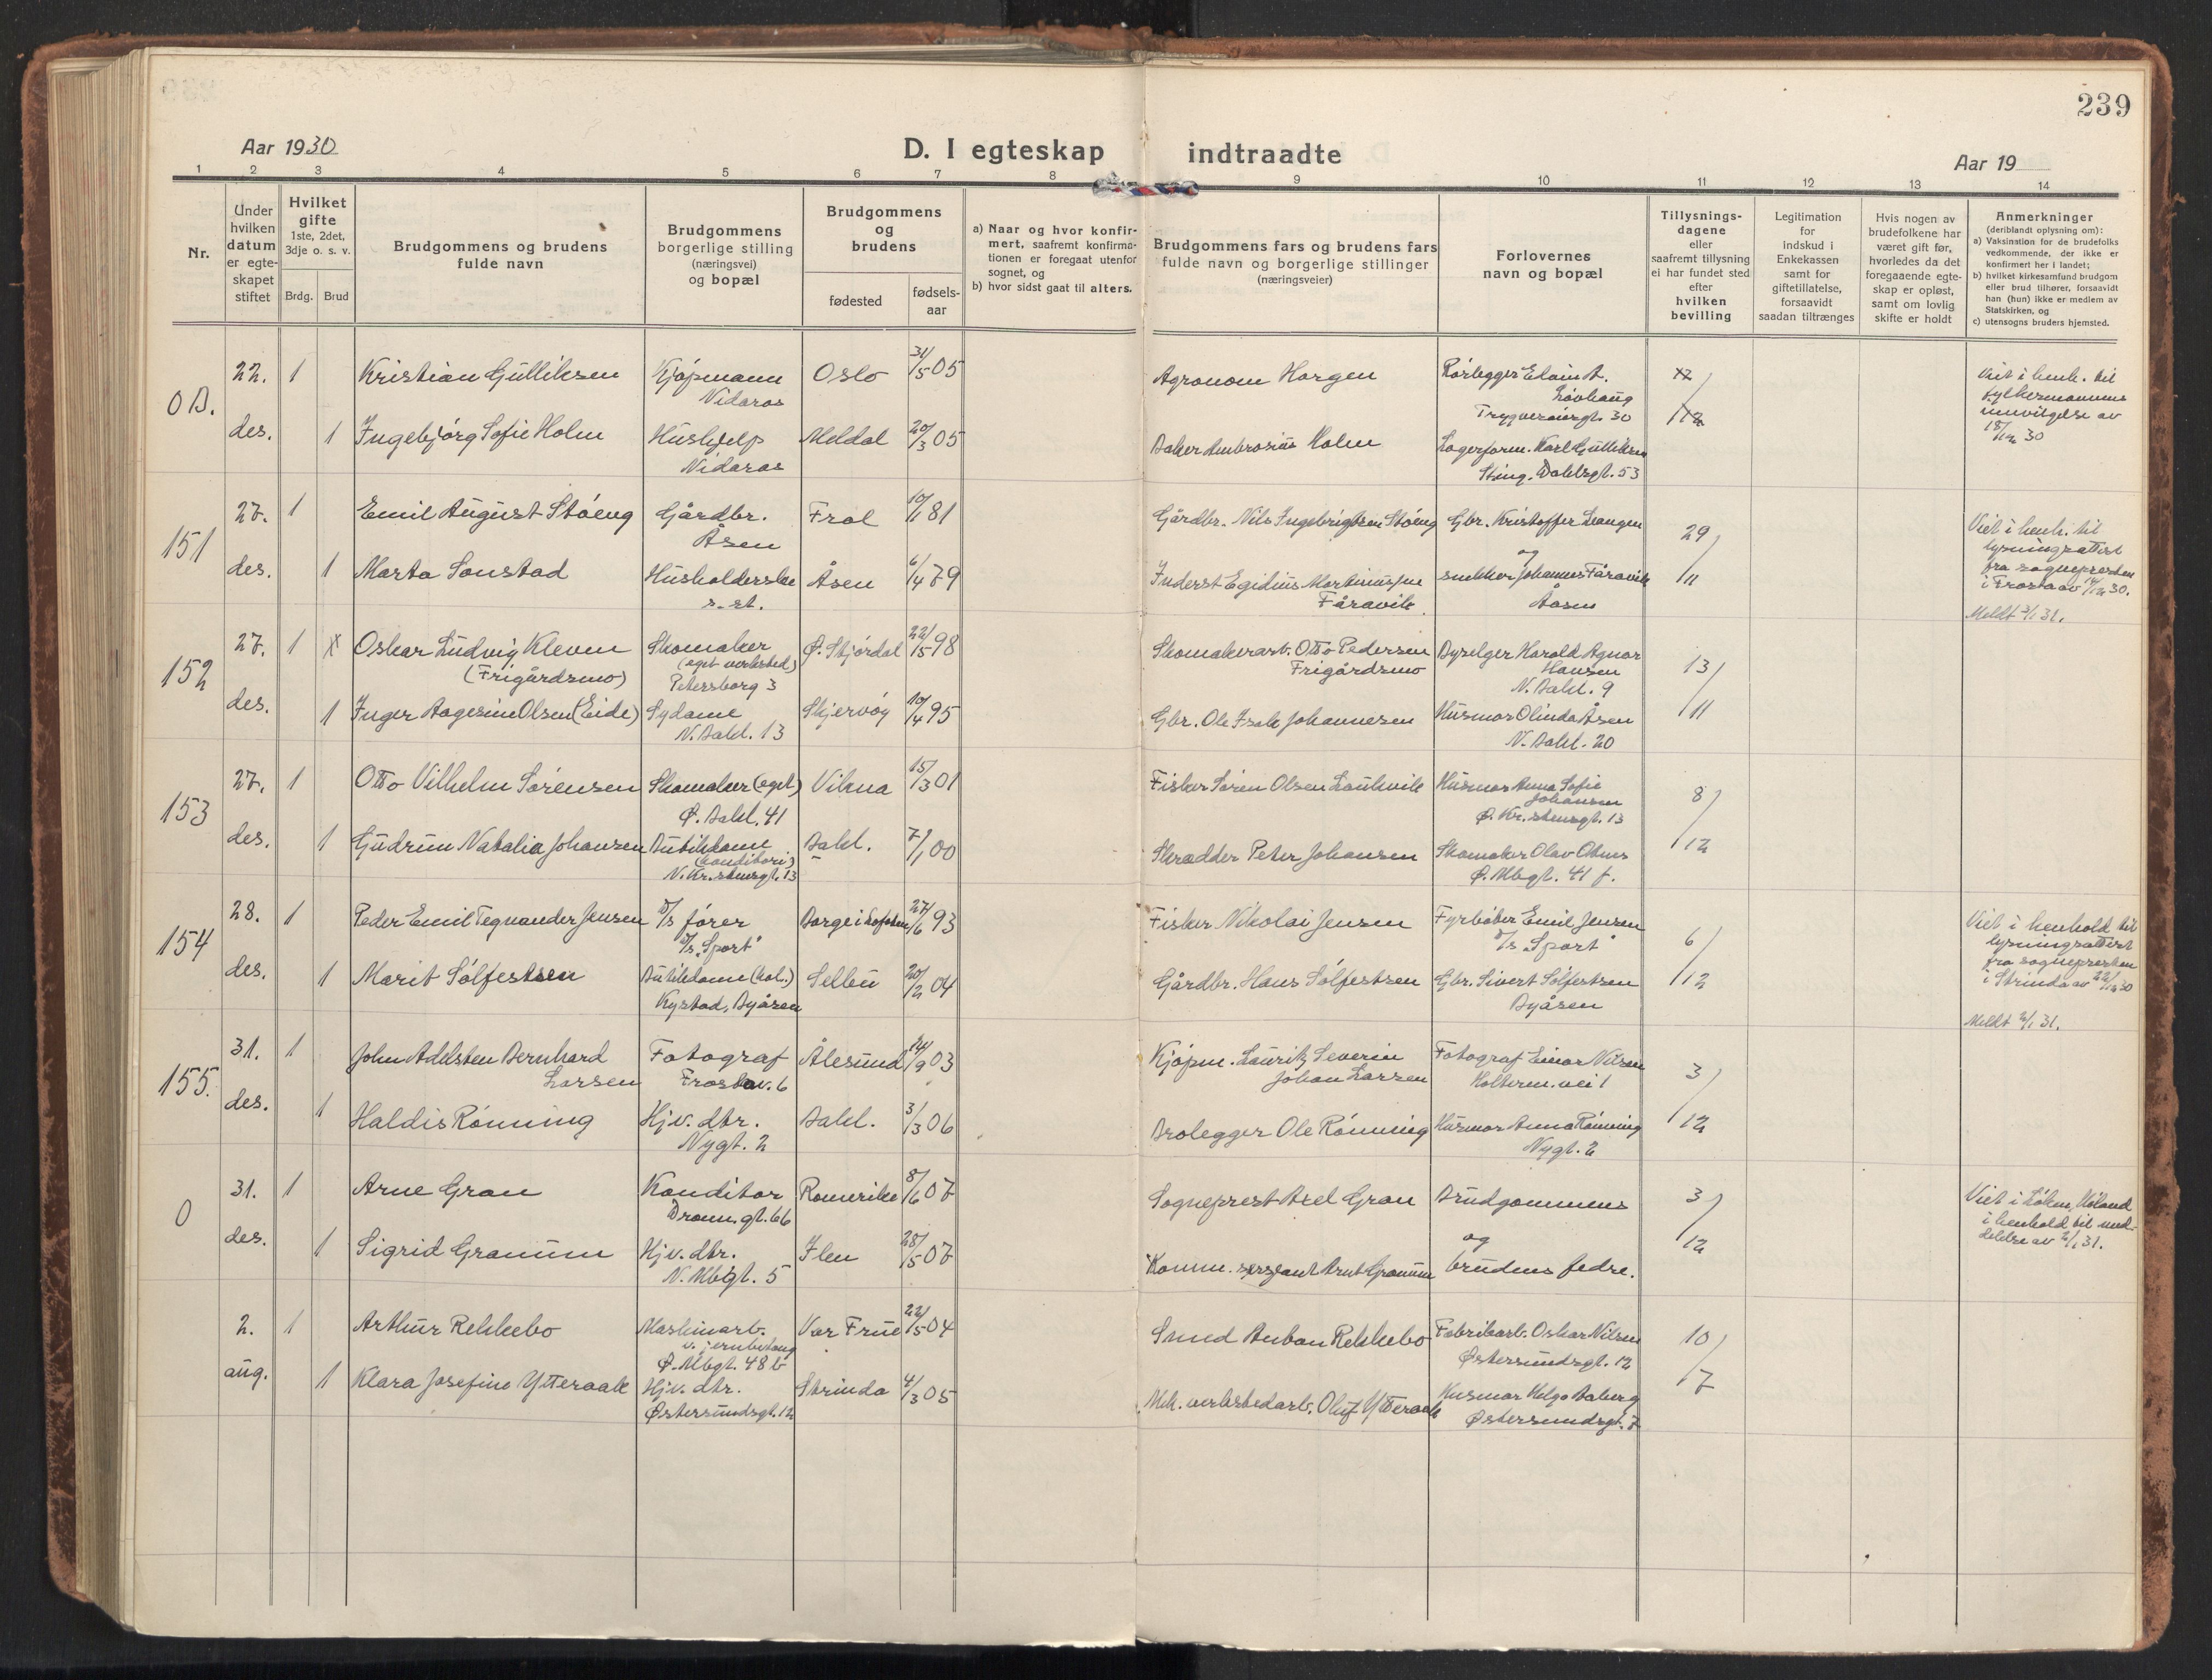 239
Aar 1930
D. I egteskap indtraadte
Aar 19
1 2 3 4 5 6 7 8 9 10 11 12 13 14
Nr.
Under hvilken datum er egteskapet stiftet
Hvilket gifte 1ste, 2det, 3dje o. s. v.
Brdg. Brud
Brudgommens og brudens fulde navn
Brudgommens borgerlige stilling (næringsvei) og bopæl
Brudgommens og brudens
fødested
fødsels-aar
a) Naar og hvor konfirmert, saafremt konfirmationen er foregaat utenfor sognet, og
b) hvor sidst gaat til alters.
Brudgommens fars og brudens fars fulde navn og borgerlige stillinger (næringsveier)
Forlovernes navn og bopæl
Tillysningsdagene eller saafremt tillysning ei har fundet sted efter hvilken bevilling
Legitimation for indskud i Enkekassen samt for giftetillatelse, forsaavidt saadan tiltrænges
Hvis nogen av brudefolkene har været gift før, hvorledes da det foregaaende egteskap er opløst, samt om lovlig skifte er holdt
Anmerkninger (deriblandt oplysning om):
a) Vaksination for de brudefolks vedkommende, der ikke er konfirmert her i landet;
b) hvilket kirkesamfund brudgom eller brud tilhører, forsaavidt han (hun) ikke er medlem av Statskirken, og
c) utensogns bruders hjemsted.
22. 1 Kristian Gulliksen Kjøpmann Oslo 31/5 05 Agronom Horgen Rørlegger
Nidaros Løvhaug
Trygvesonsgt. 30
des. 1 Ingebjørg Sofie Holm Hushjelp Meldal 20/3 05 Baker Ambrosius Holm Lagerform. Karl Gulliksen
Nidaros Sting. Dahlsgt. 53
Viet i henh. til
fylkesmannens
av
18/12 30
151 27. 1 Emil August Støeng Gårdbr. Frol 10/1 81 Gårdbr. Nils Ingebrigtsen Støeng Gbr. Kristoffer Leangen 29/
Åsen og
des. 1 Marta Sonstad Husholderske Åsen 6/4 79 Inderst Egidius Martinussen snekker Johannes Fåravik /11
s. st. Fåravik Åsen
Viet i henh. til
lysningsattest
fra sognepresten
i Frosta av 14/12 30.
Meldt 3/1 31.
152 27. 1 Oskar Ludvig Kleven Skomaker Ø. Stjørdal 22/5 98 Skomakerarb. Otto Pedersen Harald Agnar 13/
(Frigårdsmo) (eget verksted) Frigårdsmo Hansen
Petersborg 3 N. Bakl. 9
des. 1 Inger Aagesine Olsen (Eide) Sydame Skjervøy 10/4 95 Gbr. Ole Isak Johannesen Husmor Olinda Åsen /11
N. Bakl. 13 N. Bakl. 20
153 27. 1 Otto Vilhelm Sørensen Skomaker (eget) Vikna 15/3 01 Fisker Søren Olsen Laukvik Husmor Anna Sofie 8/
Ø. Bakl. 41 Johansen
Ø. Kr.stensgt. 13
des. 1 Gudrun Natalia Johansen Butikdame Bakl. 7/1 00 Skrædder Peter Johansen Skomaker Olav /12
(konditori) Ø. Mbgt. 41 f.
N. Kr.stensgt. 13
154 28. 1 Peder Emil Tegnander Jensen D/s fører Borge i Lofoten 27/6 93 Fisker Nikolai Jensen Fyrbøter Emil Jensen 6/
D/s „Sport" D/s „Sport"
des. 1 Marit Sølfestsen Butikdame (kol.) Selbu 20/2 04 Gårdbr. Hans Sølfestsen Gbr. Sivert Sølfestsen /12
Kystad, Byåsen Byåsen
Viet i henhold til
lysningsattest
fra sognepresten
i Strinda av 22/12 30
Meldt 2/1 31.
155. 31. 1 John Adelsten Bernhard Fotograf Ålesund 14/9 03 Kjøpm. Lauritz Severin Fotograf Einar Nilsen 3/
Larsen Frostav. 6 Johan Larsen Holterm. vei 1
des. 1 Haldis Rønning Hjv. dtr. Bakl. 3/3 06 Brolegger Ole Rønning Husmor Anna Rønning /12
Nygt. 2 Nygt. 2
0 31. 1 Arne Gran Konditor Romerike 8/6 07 Sogneprest Axel Gran Brudgommens 3/
Dronn. gt. 66 og
des. 1 Sigrid Granum Hjv. dtr. Ilen 28/5 07 Komm. sersjant Granum brudens fedre. /12
N. Mbgt. 5
Viet i Løken, Høland
i henhold til med-
delelse av 2/1 31.
2. 1 Arthur Rekkebo Maskinarb. Vor Frue 22/5 04 Smed Anton Rekkebo Fabrikarb. Oskar Nilsen 10/
v. jernbetong Østersundsgt. 12
Ø. Mbgt. 48 b
aug. 1 Klara Josefine Ytteraak Hjv. dtr. Strinda 4/3 05 Mek. verkstedarb. Oluf Ytteraak Husmor Helga Aaberg /7
Østersundsgt. 12 Østersundsgt. 7